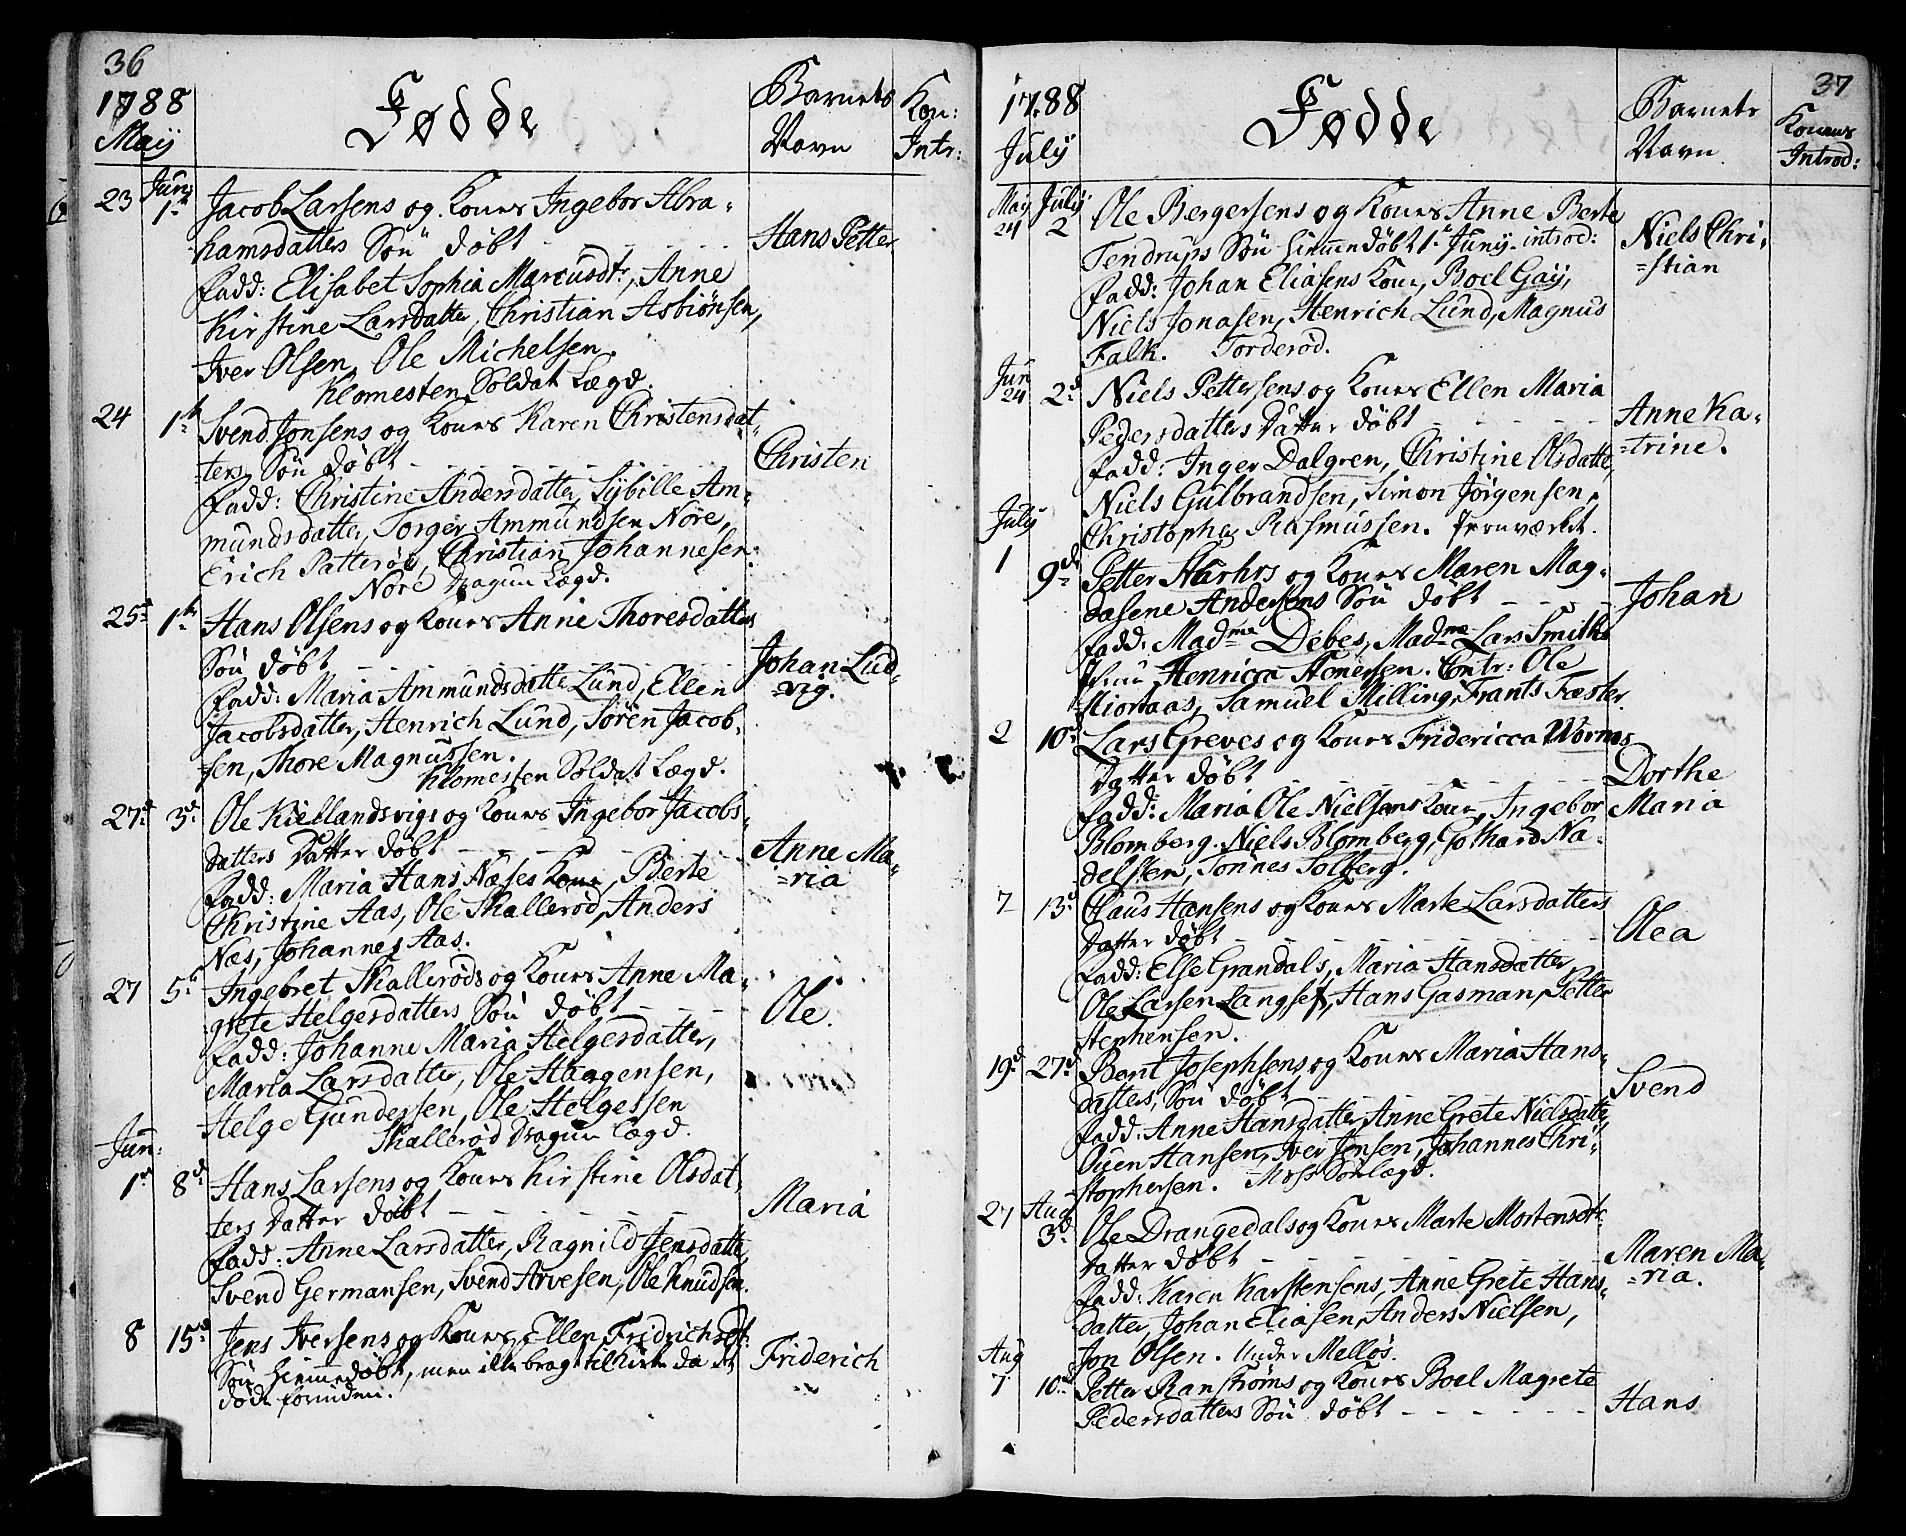 36
1788
May
Fødde
Barnets
Navn
Kon:
Intr:
23 Junj 1te Jacob Larsens og Kones Ingebor Abra-
hamsdatters Søn døbt - - - Hans Petter
Fadd: Elisabet Sophia Marcusdtr, Anne
Kirstine Larsdatter, Christian Asbiönsen,
Iver Olsen, Ole Michelsen.
Klomesten Soldat Lægd.
24 1te Svend Jonsens og Kones Karen Christensdat-
ters Søn døbt - - - Christen
Fadd: Christine Andersdatter, Sybille Am-
mundsdatter, Torger Ammundsen Nore,
Erich Patterød, Christian Johannesen.
Nore Dragun Lægd.
25d 1te Hans Olsens og Kones Anne Thoresdatters
Søn døbt - - - Johan Lud-
=vig.
Fadd: Maria Ammundsdatter Lund, Ellen
Jacobsdatter, Henrich Lund, Sören Jacob-
sen, Thore Magnussen.
Klomesten Soldat Lægd.
27d 3d Ole Kiellandsvigs og Kones Ingebor Jacobs-
datters Datter døbt - - - Anne Ma-
=ria
Fadd: Maria Hans Næses Kone, Berte
Christine Aas, Ole Skallerød, Anders
Næs, Johannes Aas.
27 5te Ingebret Skallerøds og Kones Anne Ma-
grete Helgesdatters Søn døbt - - - Ole.
Fadd: Johanne Maria Helgesdatter,
Maria Larsdatter, Ole Haagensen,
Helge Gundersen, Ole Helgesen
Skallerød Dragun Lægd.
Jun:
1te 8de Hans Larsens og Kones Kirstine Olsdat-
ters Datter døbt - - - Maria
Fadd: Anne Larsdatter, Ragnild Jensdatter
Svend Germansen, Svend Arvesen, Ole Knudsen.
8 15d Jens Iversens og Kones Ellen Fridrichsdtr:
Søn hiemmedøbt, men ikke bragt til Kirke da det
døde forinden. Friderich
37
1788
July
Fødde
Barnets
Navn
Konens
Introd:
May 24 July 2 Ole Bergersens og Kones Anne Berte
Tendrups Søn hiemmedøbt 1te Juny. introd: Niels Chri-
=stian
Fadd: Johan Eliasens Kone, Boel Gay,
Niels Jonasen, Henrich Lund, Magnus
Falk. Torderød.
Jun 24 2d Niels Pettersens og Kones Ellen Maria
Pedersdatters Datter døbt - - - Anne Ka-
=trine.
Fadd: Inger Dalgren, Christine Olsdatter,
Niels Gulbrandsen, Simon Jörgensen,
Christopher Rasmussen. Jernværket.
July
1 9de Petter Hührs og Kones Maren Mag-
dalene Andersens Søn døbt - - - Johan
Fadd: Madme Debes, Madme Lars Smiths
Henricca Hemersen. Contr: Ole
Miortaas, Samuel Milling, Frants Fæster.
2 10d Lars Greves og Kones Fridericca Wörmes
Datter døbt - - - Dorthe
Maria
Fadd: Maria Ole Nielsens Kone, Ingebor
Blomberg. Niels Blomberg, Gothard Na-
delsten, Tönnes Solberg.
7 13d Claus Hansens og Kones Marte Larsdatters
Datter døbt - - - Olea
Fadd: Else Grandals, Maria Hansdatter
Ole Larsen Langset, Hans Gasman, Petter
Stephensen.
19d 27d Bent Josephsens og Kones Maria Hans-
datters, Søn døbt - - - Svend
Fadd: Anne Hansdatter, Anne Grete Nielsdatter
Ouen Hansen, Iver Jensen, Johannes Chri-
stophersen. Moss Sølægd.
27 Aug 3d Ole Drangedals og Kones Marte Mortensdtr:
Datter døbt - - - Maren Ma-
=ria.
Fadd: Karen Karstensens, Anne Grete Hans-
datter, Johan Eliasen, Anders Nielsen,
Jon Olsen. Under Melløs.
Aug
7 10d Petter Ranströms og Kones Boel Magrete
Pedersdatters Søn døbt - - - Hans